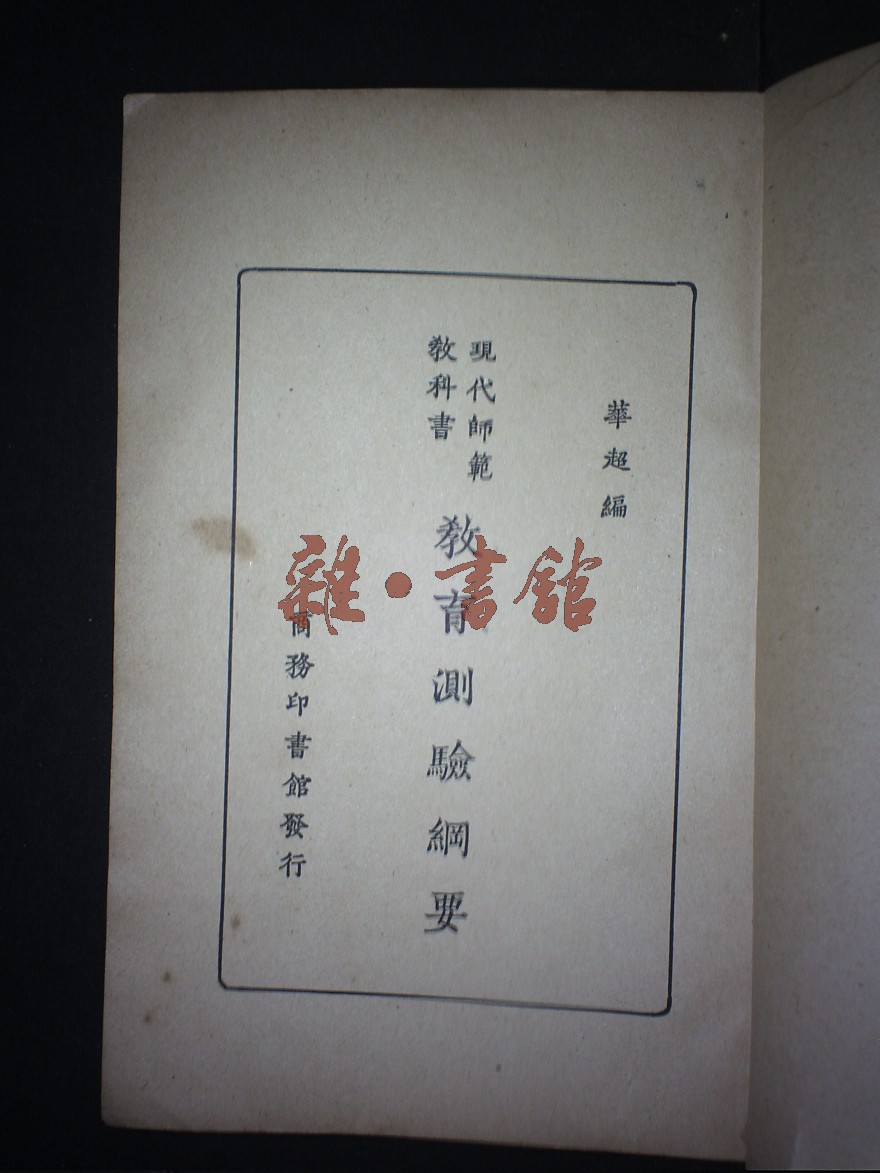 華超編
現代師範
教科書
教育測驗綱要
商務印書館發行
雜·書館